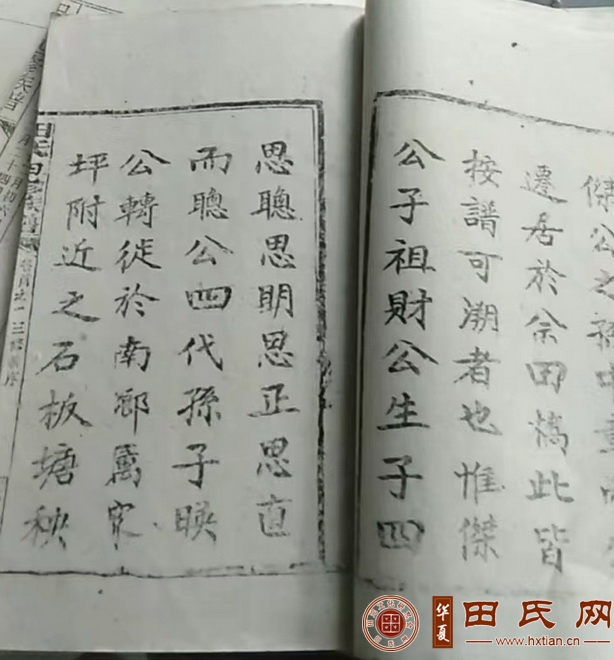 傑公之孫
遷居於佘田橋此皆
按譜可溯者也惟傑
公子祖財公生子四
思聰思明思正思直
而聰公四代孫子暎
公轉徙於南鄉萬家
坪附近之石板塘秧
田氏
華夏
田氏网
www.hxtian.cn